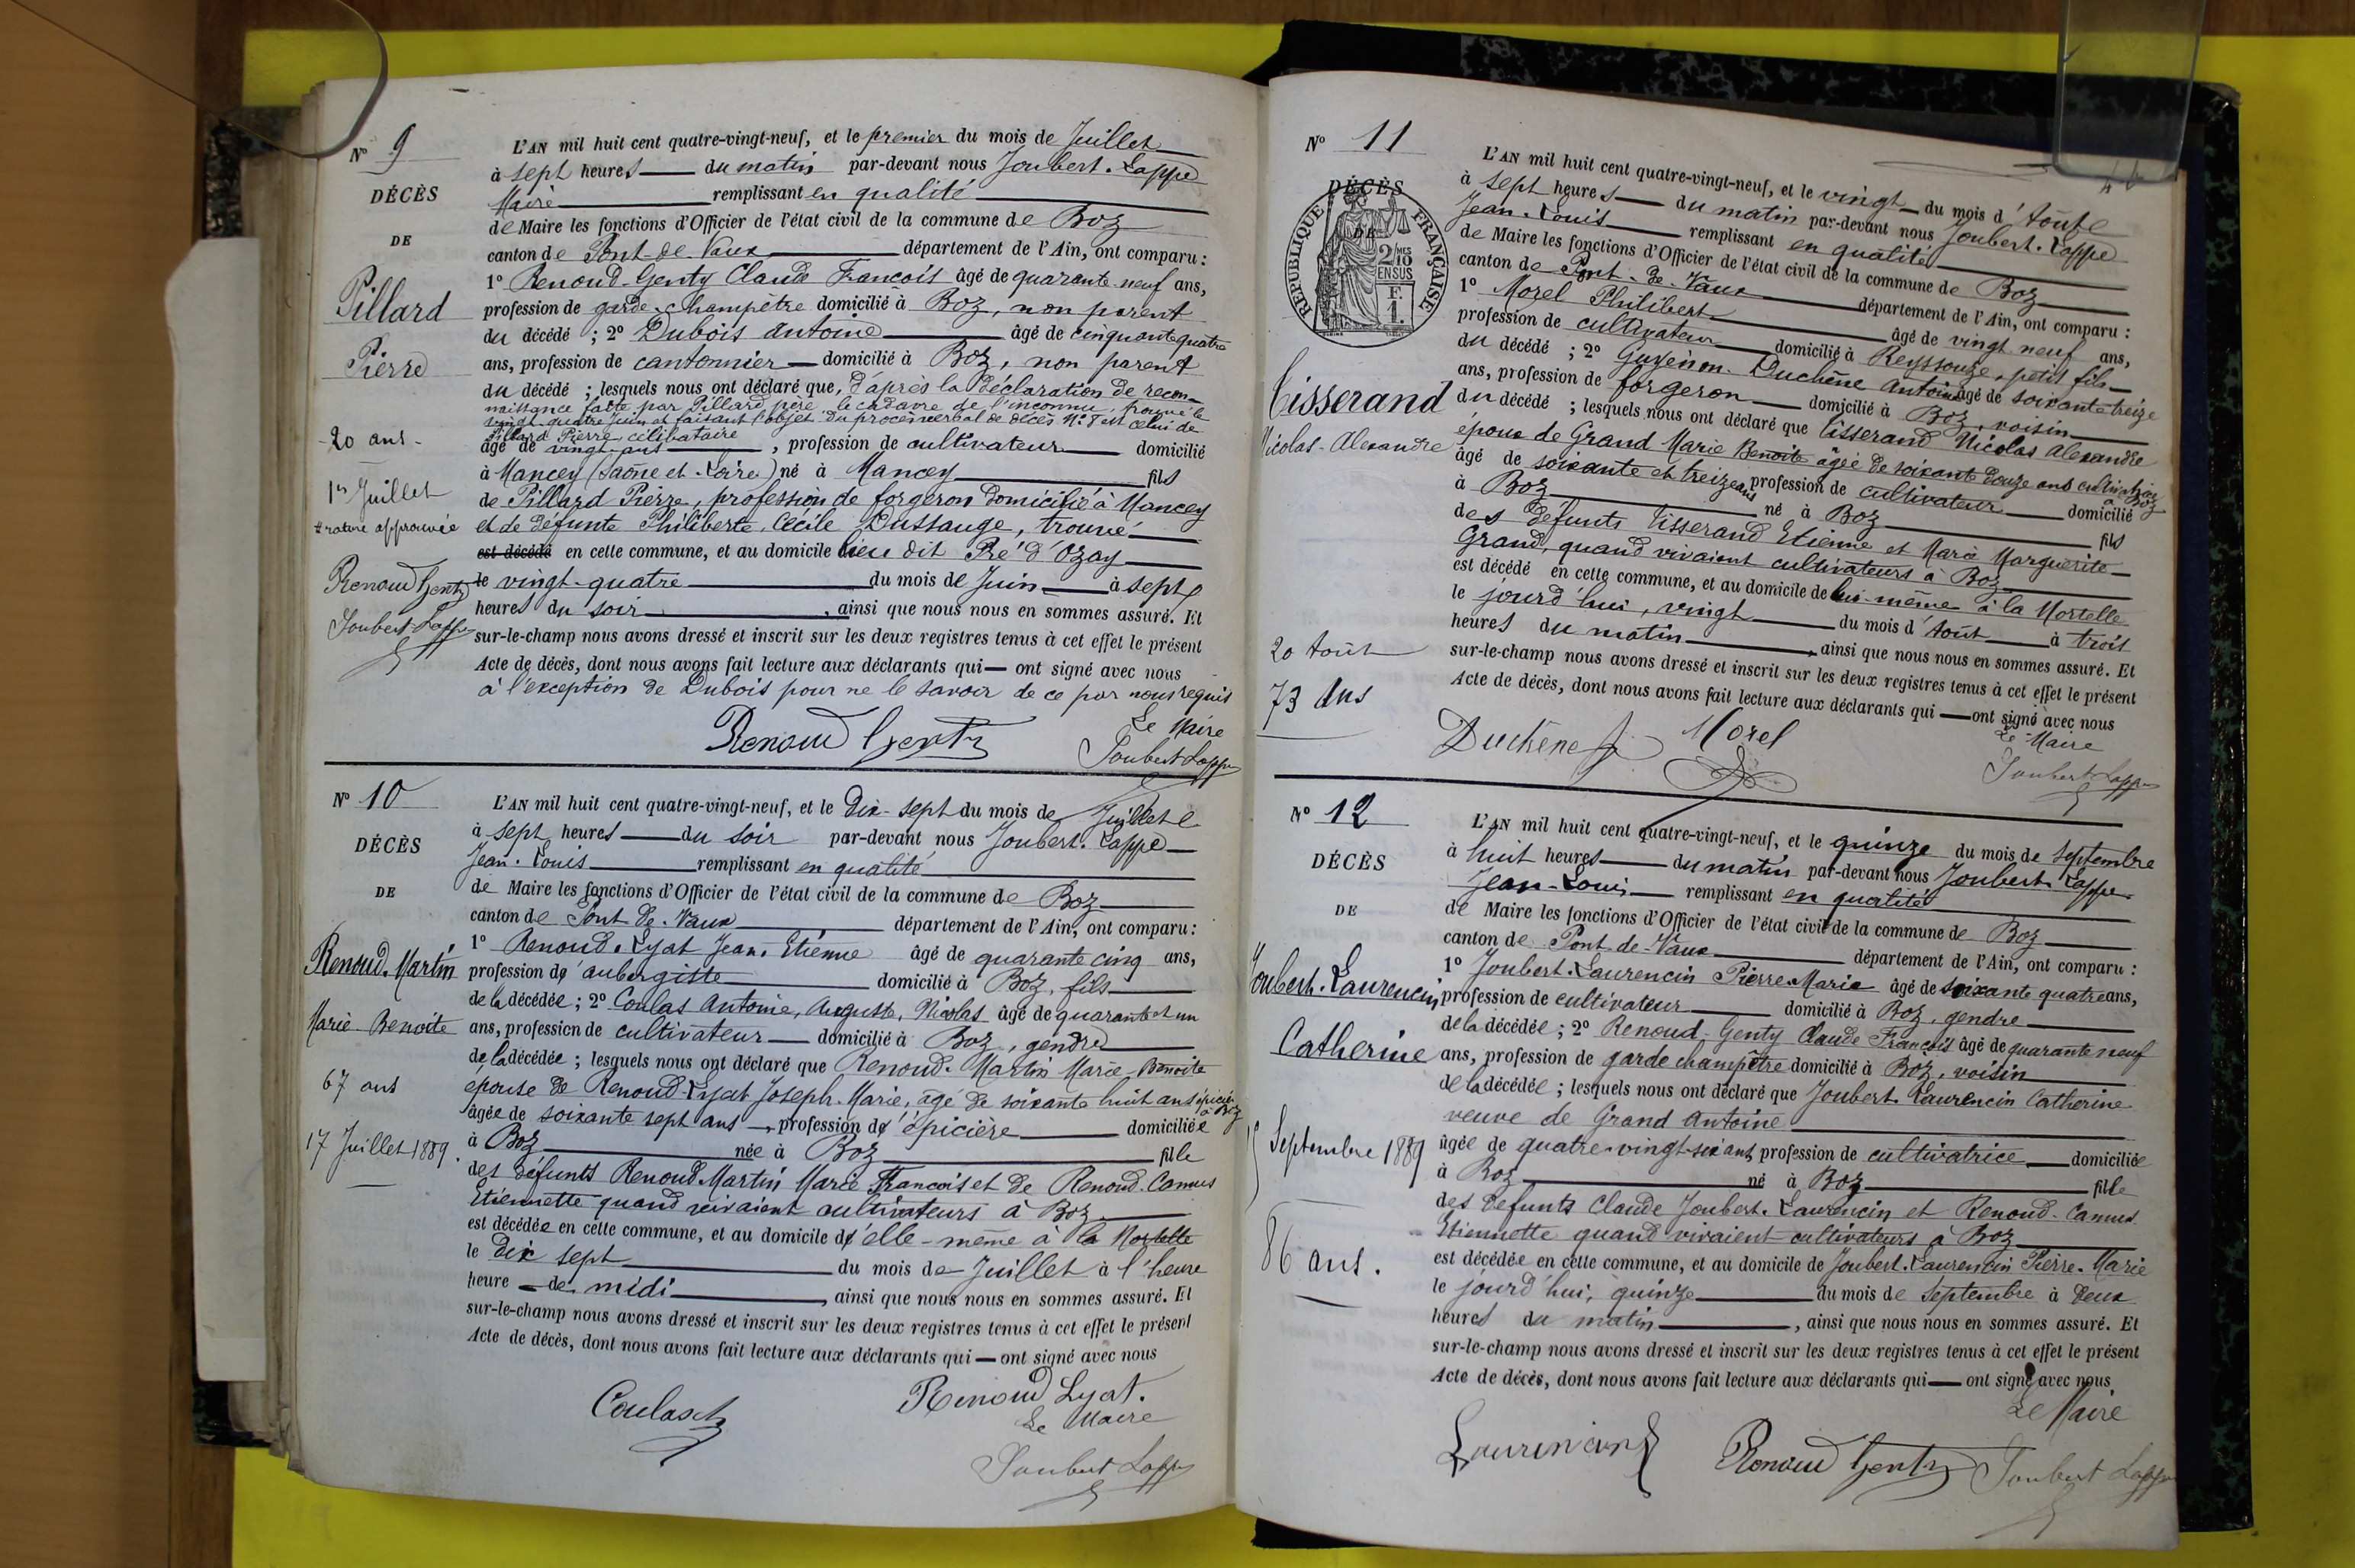 N° 9
DÉCÈS
DE
Pillard
Pierre
20 ans
1er Juillet
rature approuvée
Renoud Genty
Joubert Lappe
L'AN mil huit cent quatre-vingt-neuf, et le premier du mois de Juillet
à sept heures du matin par-devant nous Joubert-Lappe
Maire remplissant en qualité
de Maire les fonctions d'Officier de l'état civil de la commune de Boz
canton de Pont-de-Vaux département de l'Ain, ont comparu :
1° Renoud-Genty Claude François âgé de quarante-neuf ans,
profession de garde-champêtre domicilié à Boz, non parent
du décédé ; 2° Dubois Antoine âgé de cinquante quatre
ans, profession de cantonnier domicilié à Boz, non parent
du décédé ; lesquels nous ont déclaré que, d'après la déclaration de recon-
naissance faite par Pillard père, le cadavre de l'inconnu, trouvé le
vingt-quatre juin et faisant l'objet du procès verbal de décès N° 8 est celui de
Pillard Pierre célibataire
âgé de vingt ans, profession de cultivateur domicilié
à Mancey (Saône et Loire) né à Mancey fils
de Pillard Pierre, profession de forgeron domicilié à Mancey
et de défunte Philiberte, Cécile Dussauge, trouvé
est décédé en cette commune, et au domicile lieu dit Pré d'Ozay
le vingt-quatre du mois de Juin à sept
heures du soir, ainsi que nous nous en sommes assuré. Et
sur-le-champ nous avons dressé et inscrit sur les deux registres tenus à cet effet le présent
Acte de décès, dont nous avons fait lecture aux déclarants qui ont signé avec nous
à l'exception de Dubois pour ne le savoir de ce par nous requis
Le Maire
Renoud Genty
Joubert Lappe
N° 10
DÉCÈS
DE
Renoud-Martin
Marie-Benoite
67 ans
17 Juillet 1889.
L'AN mil huit cent quatre-vingt-neuf, et le dix-sept du mois de Juillet
à sept heures du soir par-devant nous Joubert-Lappe
Jean-Louis remplissant en qualité
de Maire les fonctions d'Officier de l'état civil de la commune de Boz
canton de Pont de Vaux département de l'Ain, ont comparu :
1° Renoud-Lyat Jean-Etienne âgé de quarante cinq ans,
profession d'aubergiste domicilié à Boz, fils
de la décédée ; 2° Coulas Antoine, Auguste, Nicolas âgé de quarante et un
ans, profession de cultivateur domicilié à Boz, gendre
de la décédée ; lesquels nous ont déclaré que Renoud-Martin Marie-Benoite
épouse de Renoud-Lyat Joseph-Marie, âgé de soixante huit ans épicier
à Boz
âgée de soixante sept ans, profession d'épicière domiciliée
à Boz née à Boz fille
des défunts Renoud-Martin Marie François et de Renoud-Camus
Etiennette quand vivaient cultivateurs à Boz
est décédée en cette commune, et au domicile d'elle-même à la Mortelle
le dix sept du mois de Juillet à l'heure
heure de midi, ainsi que nous nous en sommes assuré. Et
sur-le-champ nous avons dressé et inscrit sur les deux registres tenus à cet effet le présent
Acte de décès, dont nous avons fait lecture aux déclarants qui ont signé avec nous
Coulas
Renoud Lyat.
Le Maire
Joubert Lappe
N° 11
DÉCÈS
DE
RÉPUBLIQUE FRANÇAISE
2/10
EN SUS
F.
1.
Tisserand
Nicolas-Alexandre
20 Août
73 Ans
L'AN mil huit cent quatre-vingt-neuf, et le vingt du mois d'Août
à sept heures du matin par-devant nous Joubert-Lappe
Jean-Louis remplissant en qualité
de Maire les fonctions d'Officier de l'état civil de la commune de Boz
canton de Pont-de-Vaux département de l'Ain, ont comparu :
1° Morel Philibert âgé de vingt neuf ans,
profession de cultivateur domicilié à Reyssouze, petit fils
du décédé ; 2° Duchêne Antoine âgé de soixante treize
ans, profession de forgeron domicilié à Boz, voisin
du décédé ; lesquels nous ont déclaré que Tisserand Nicolas Alexandre
époux de Grand Marie Benoite âgée de soixante douze ans cultivatrice
à Boz
âgé de soixante et treize ans profession de cultivateur domicilié
à Boz né à Boz fils
des défunts Tisserand Etienne et Marie Marguerite
Grand, quand vivaient cultivateurs à Boz
est décédé en cette commune, et au domicile de lui-même à la Mortelle
le jourd'hui, vingt du mois d'Août à trois
heures du matin, ainsi que nous nous en sommes assuré. Et
sur-le-champ nous avons dressé et inscrit sur les deux registres tenus à cet effet le présent
Acte de décès, dont nous avons fait lecture aux déclarants qui ont signé avec nous
Duchêne
Morel
Le Maire
Joubert Lappe
N° 12
DÉCÈS
DE
Joubert-Laurencin
Catherine
15 Septembre 1889
86 ans.
L'AN mil huit cent quatre-vingt-neuf, et le quinze du mois de Septembre
à huit heures du matin par-devant nous Joubert Lappe
Jean-Louis remplissant en qualité
de Maire les fonctions d'Officier de l'état civil de la commune de Boz
canton de Pont-de-Vaux département de l'Ain, ont comparu :
1° Joubert-Laurencin Pierre-Marie âgé de soixante quatre ans,
profession de cultivateur domicilié à Boz, gendre
de la décédée ; 2° Renoud-Genty Claude François âgé de quarante neuf
ans, profession de garde champêtre domicilié à Boz, voisin
de la décédée ; lesquels nous ont déclaré que Joubert-Laurencin Catherine
veuve de Grand Antoine
âgée de quatre-vingt-six ans, profession de cultivatrice domiciliée
à Boz né à Boz fille
des défunts Claude Joubert-Laurencin et Renoud-Camus
Etiennette quand vivaient cultivateurs à Boz
est décédée en cette commune, et au domicile de Joubert-Laurencin Pierre-Marie
le jourd'hui, quinze du mois de Septembre à deux
heures du matin, ainsi que nous nous en sommes assuré. Et
sur-le-champ nous avons dressé et inscrit sur les deux registres tenus à cet effet le présent
Acte de décès, dont nous avons fait lecture aux déclarants qui ont signé avec nous
Le Maire
Laurencin
Renoud Genty
Joubert Lappe